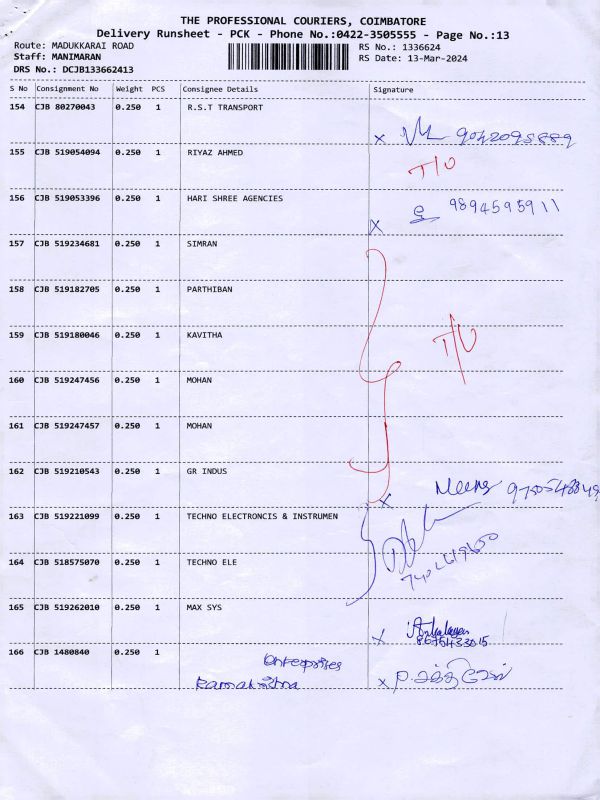 THE PROFESSIONAL COURIERS, COIMBATORE
Delivery Runsheet - PCK - Phone No.:0422-3505555 - Page No.:13
Route: MADUKKARAI ROAD RS No.: 1336624
Staff: MANIMARAN RS Date: 13-Mar-2024
DRS No.: DCJB133662413
S No Consignment No Weight PCS Consignee Details Signature
154 CJB 80270043 0.250 1 R.S.T TRANSPORT
x 9042095889
155 CJB 519054094 0.250 1 RIYAZ AHMED
T/O
156 CJB 519053396 0.250 1 HARI SHREE AGENCIES
x 9894595911
157 CJB 519234681 0.250 1 SIMRAN
158 CJB 519182705 0.250 1 PARTHIBAN
159 CJB 519180046 0.250 1 KAVITHA
T/O
160 CJB 519247456 0.250 1 MOHAN
161 CJB 519247457 0.250 1 MOHAN
162 CJB 519210543 0.250 1 GR INDUS
x Meena
163 CJB 519221099 0.250 1 TECHNO ELECTRONCIS & INSTRUMEN
164 CJB 518575070 0.250 1 TECHNO ELE
165 CJB 519262010 0.250 1 MAX SYS
x 8675433015
166 CJB 1480840 0.250 1
Enterprises
Ramakrishna x P. சக்திவேல்